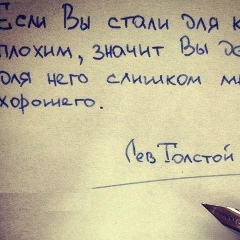 Если Вы стали для к
плохим, значит Вы де
для него слишком м
хорошего.
Лев Толстой